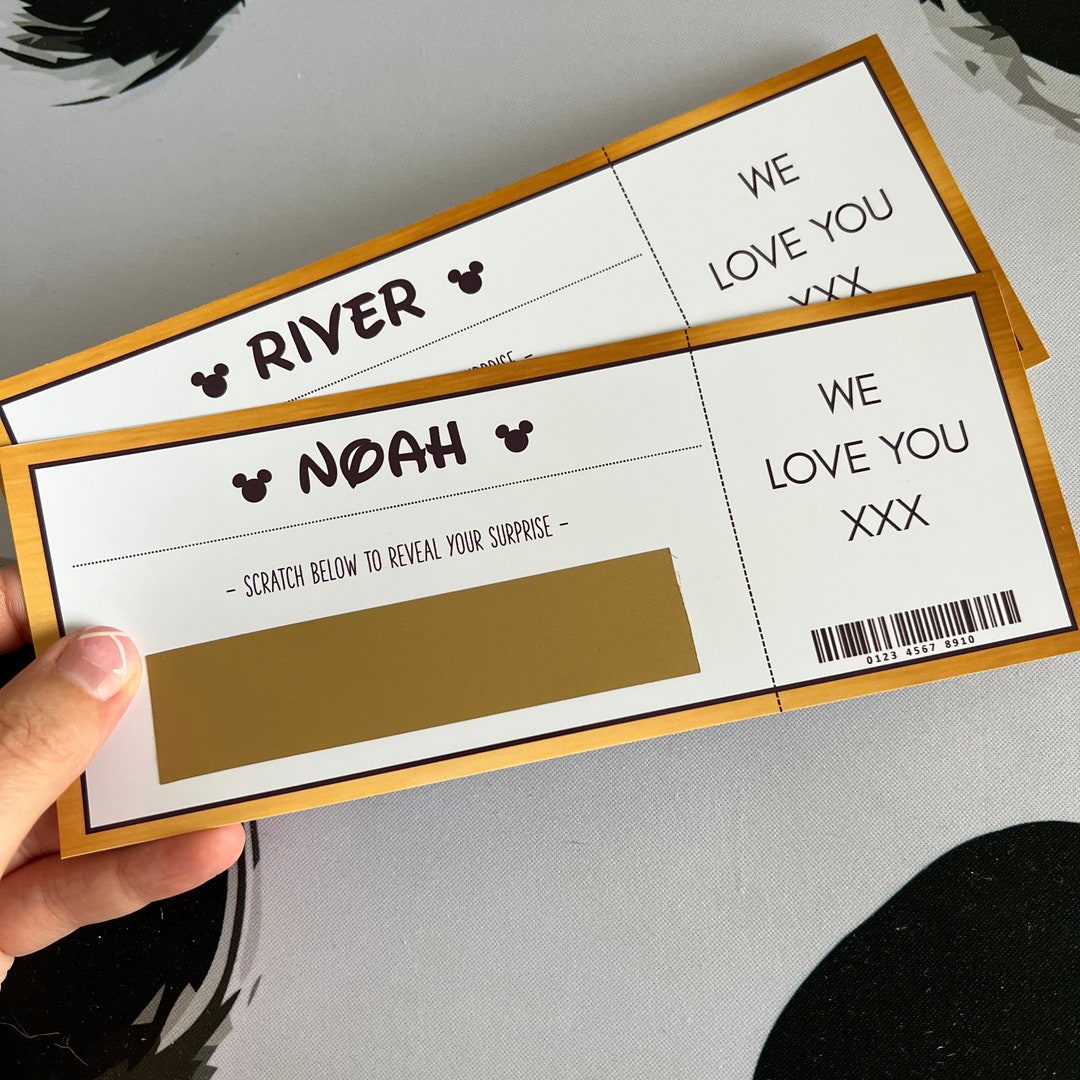 RIVER
WE
LOVE YOU
XXX
NOAH
- SCRATCH BELOW TO REVEAL YOUR SURPRISE -
WE
LOVE YOU
XXX
0123 4567 8910